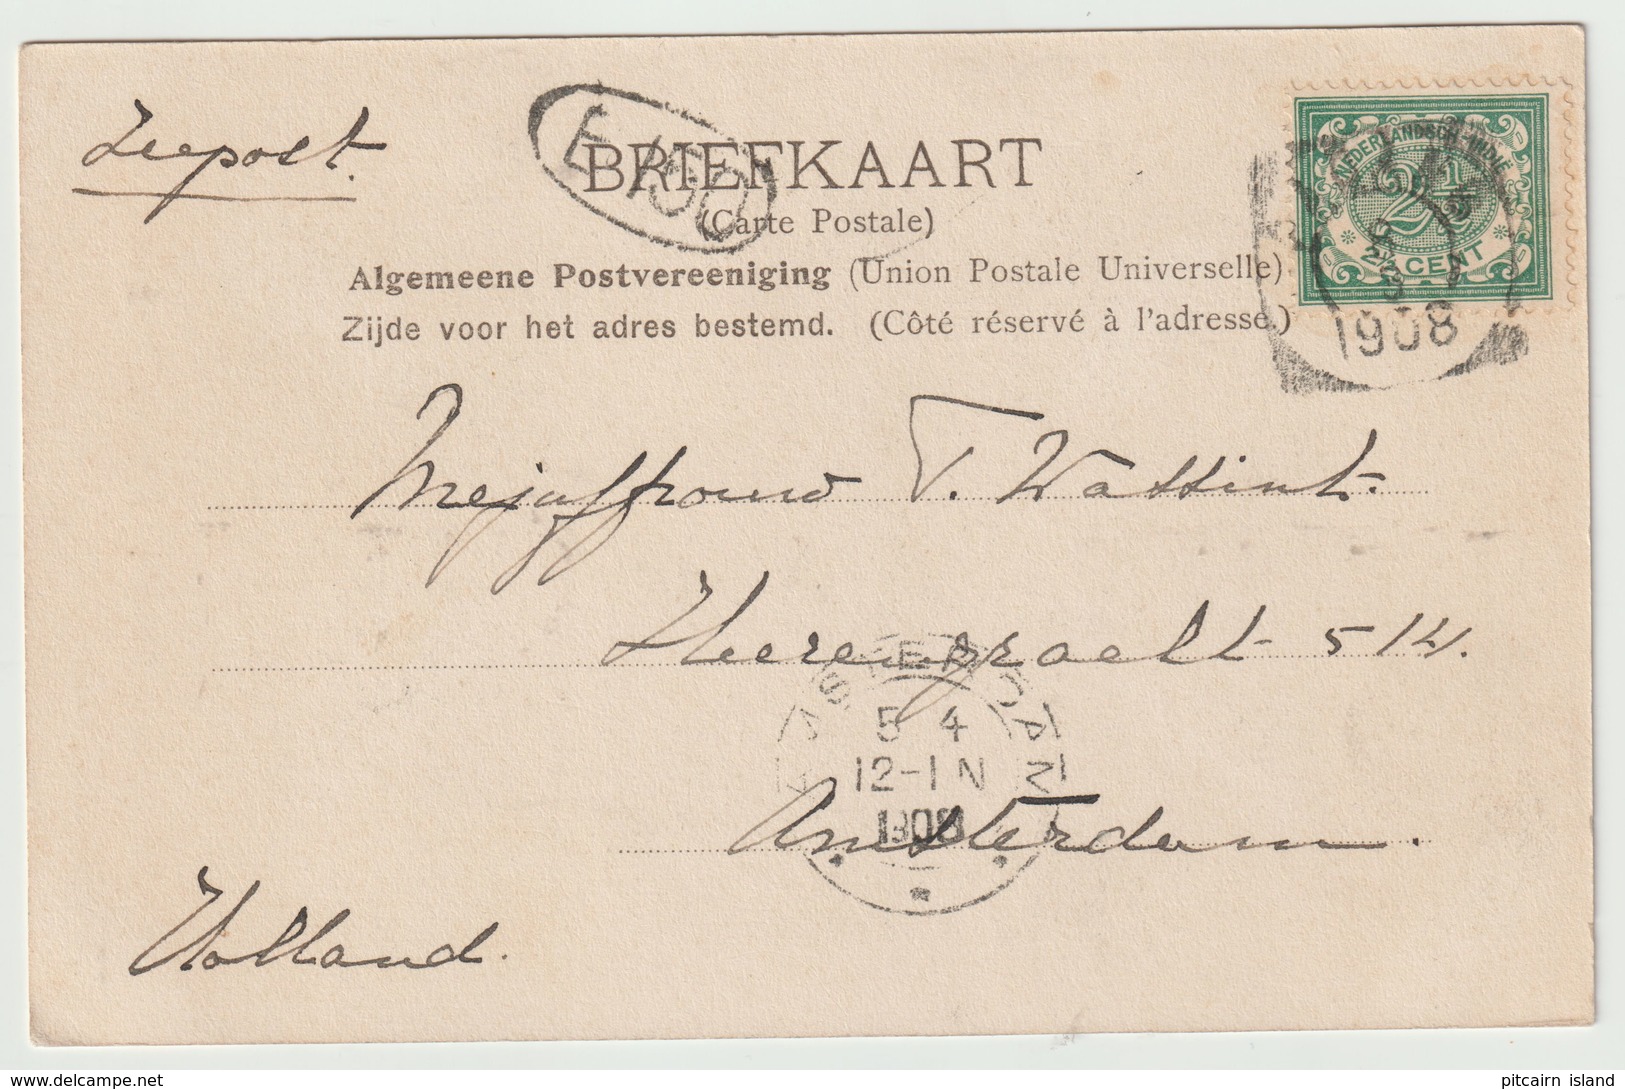 Zeepost.
E 150
BRIEFKAART
(Carte Postale)
Algemeene Postvereeniging (Union Postale Universelle)
Zijde voor het adres bestemd. (Côté réservé à l'adresse.)
NEDERLANDSCH-INDIË
2½
CENT
1908
Mejuffrouw T. Wassink.
Heerengracht 514.
AMSTERDAM
5 4
12-1 N
1908
Amsterdam.
Holland.
delcampe.net
pitcairn island